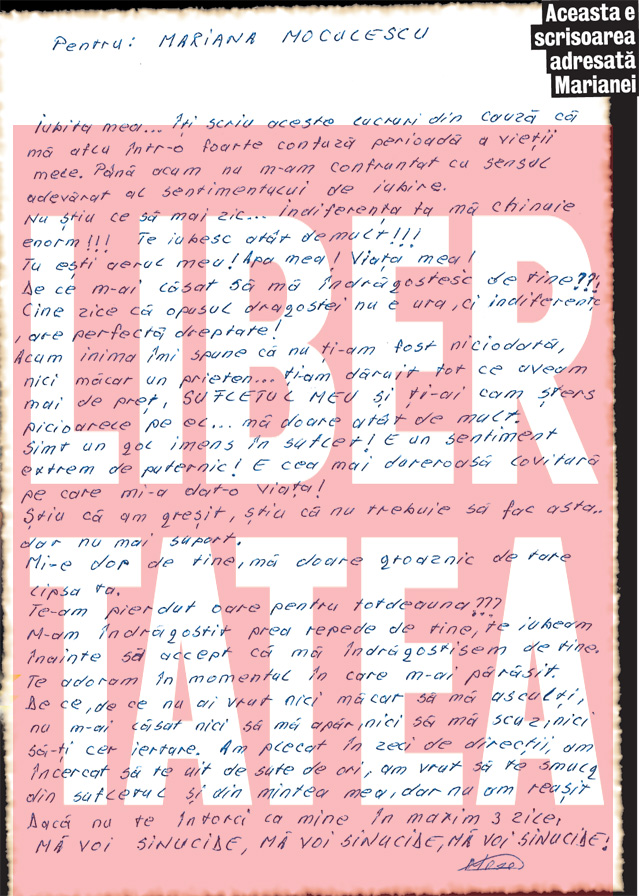 Aceasta e
scrisoarea
adresată
Marianei
Pentru: MARIANA MOCULESCU
Iubita mea... Îți scriu aceste lucruri din cauză că
mă aflu într-o foarte confuză perioadă a vieții
mele. Până acum nu m-am confruntat cu sensul
adevărat al sentimentului de iubire.
Nu știu ce să mai zic... indiferența ta mă chinuie
enorm!!! Te iubesc atât de mult!!!
Tu ești aerul meu! Apa mea! Viața mea!
De ce m-ai lăsat să mă îndrăgostesc de tine???
Cine zice că opusul dragostei nu e ura, ci indiferența
, are perfectă dreptate!
Acum inima îmi spune că nu ți-am fost niciodată,
nici măcar un prieten... ți-am dăruit tot ce aveam
mai de preț, SUFLETUL MEU și ți-ai cam șters
picioarele pe el... mă doare atât de mult.
Simt un gol imens în suflet! E un sentiment
extrem de puternic! E cea mai dureroasă lovitură
pe care mi-a dat-o viața!
Știu că am greșit, știu că nu trebuie să fac asta..
dar nu mai suport.
Mi-e dor de tine, mă doare groaznic de tare
lipsa ta.
Te-am pierdut oare pentru totdeauna???
M-am îndrăgostit prea repede de tine, te iubeam
înainte să accept că mă îndrăgostisem de tine.
Te adoram în momentul în care m-ai părăsit.
De ce, de ce nu ai vrut nici măcar să mă asculți,
nu m-ai lăsat nici să mă apăr, nici să mă scuz, nici
să-ți cer iertare. Am plecat în zeci de direcții, am
încercat să te uit de sute de ori, am vrut să te smulg
din sufletul și din mintea mea, dar nu am reușit
Dacă nu te întorci la mine în maxim 3 zile,
MĂ VOI SINUCIDE, MĂ VOI SINUCIDE, MĂ VOI SINUCIDE!
LIBER
TATEA